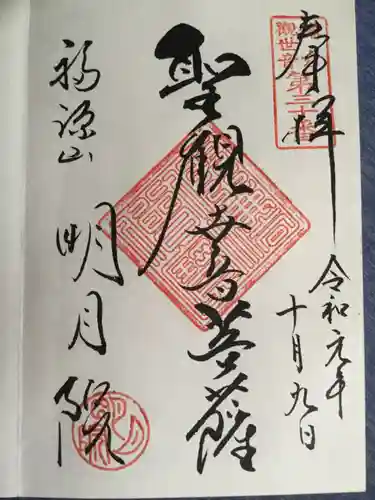 奉拝
観世音
第三十番
令和元年
十月九日
聖観世音菩薩
福源山
明月院